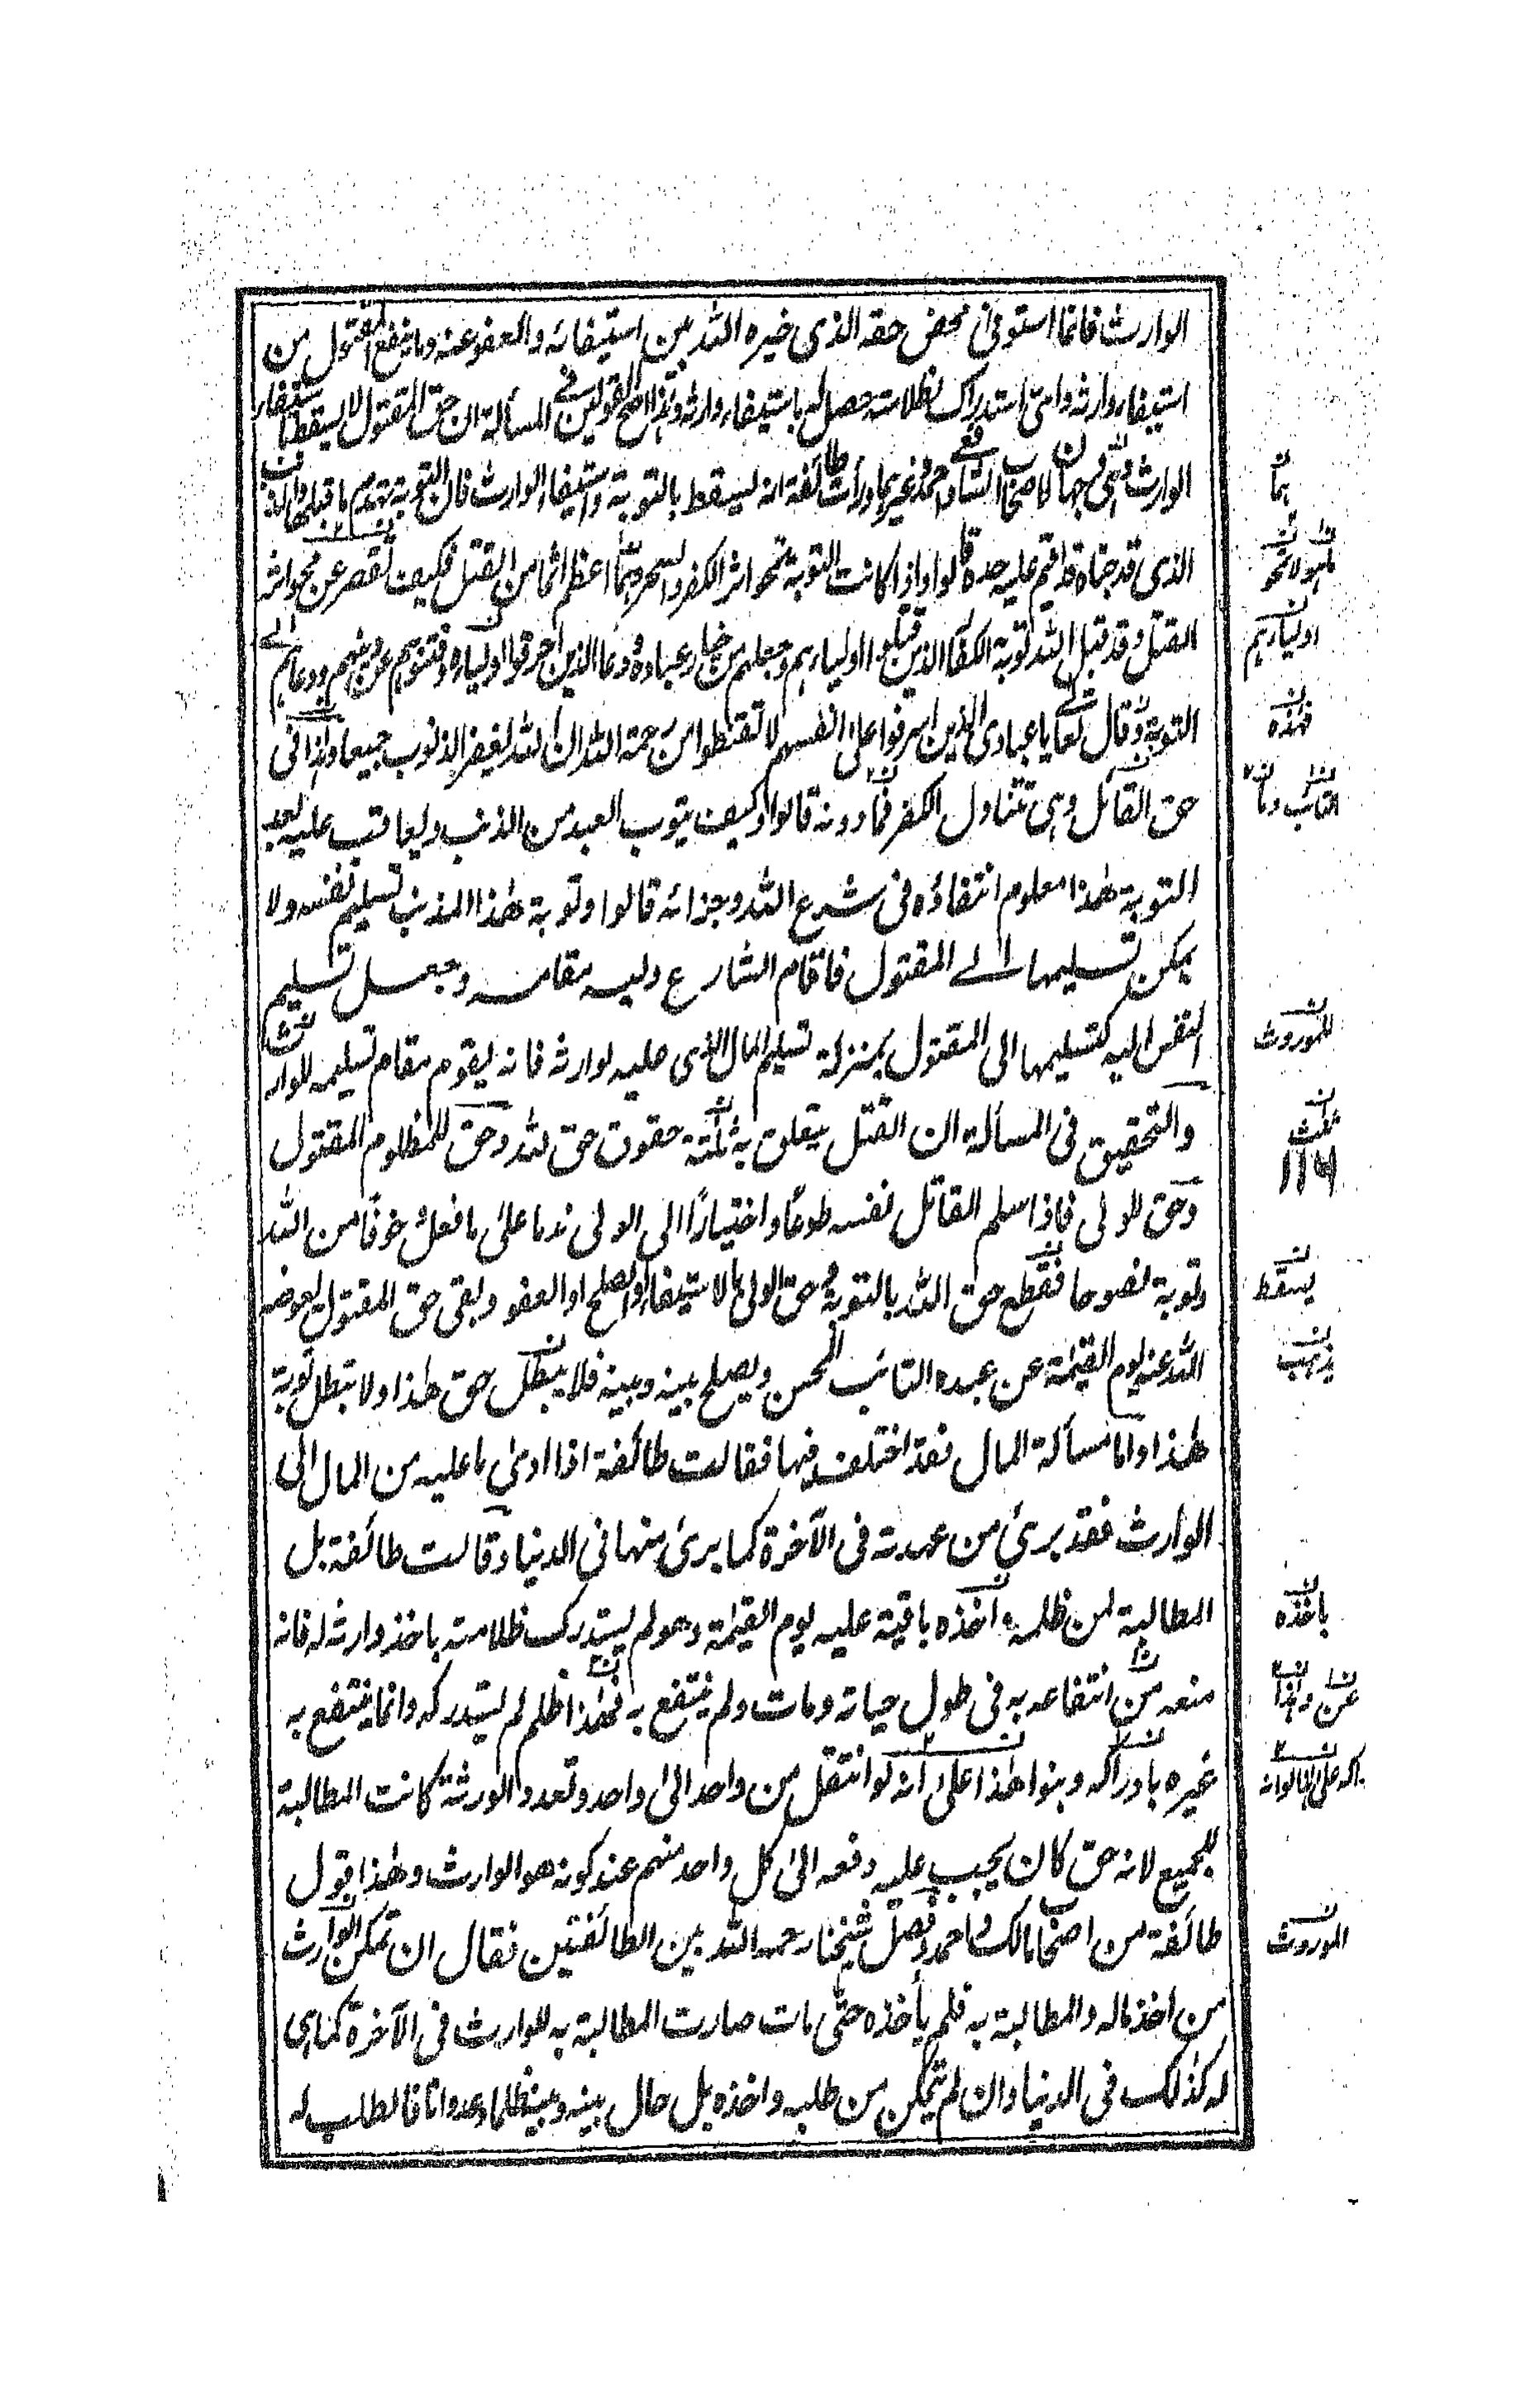 الوارث فانما استوفى محض حقه الذى خيره الله بين استيفائه والعفو عنه وما ينفع المقتول من
استيفاء وارثه واى استدراك لظلامته حصل له باستيفاء وارثه وهذا اصح القولين فى المسألة ان حق المقتول لا يسقط باستيفاء
الوارث وهى وجهان لاصحاب الشافعى واحمد وغيرهما ورأت طائفة انه يسقط بالتوبة واستيفاء الوارث فان التوبة تهدم ما قبلها والذنب
الذى قد جناه قد اقيم عليه حده قالوا واذا كانت التوبة تمحو اثر الكفر والسحر وهما اعظم اثما من القتل فكيف تقصر عن محو اثر
القتل وقد قبل الله توبة الكفار الذين قتلوا اولياءهم وجعلهم من خيار عباده ودعا الذين احرقوا اولياءه وفتنوهم عن دينهم ودعاهم الى
التوبة وقال تعالى يا عبادى الذين اسرفوا على انفسهم لا تقنطوا من رحمة الله ان الله يغفر الذنوب جميعا وهذا فى
حق القاتل وهى تتناول الكفر فما دونه قالوا وكيف يتوب العبد من الذنب ويعاقب عليه بعد
التوبة هذا معلوم انتفاؤه فى شرع الله وجزائه قالوا وتوبة هذا المذنب تسليم نفسه ولا
يمكن تسليمها الى المقتول فاقام الشارع وليه مقامه وجعل تسليم
النفس اليه كتسليمها الى المقتول بمنزلة تسليم المال الذى عليه لوارثه فانه يقوم مقام تسليمه للوارث
والتحقيق فى المسألة ان القتل يتعلق به ثلثة حقوق حق لله وحق للمظلوم المقتول
وحق للولى فاذا سلم القاتل نفسه طوعًا واختيارًا الى الولى ندما على ما فعل وخوفا من الله
وتوبة نصوحا فقطع حق الله بالتوبة وحق الولى بالاستيفاء او الصلح او العفو وبقى حق المقتول يعوضه
الله عنه يوم القيٰمة عن عبده التائب المحسن ويصلح بينه وبينه فلا يبطل حق هٰذا ولا تبطل توبة
هٰذا واما مسألة المال فقد اختلف فيها فقالت طائفة اذا ادى ما عليه من المال الى
الوارث فقد برئ من عهدته فى الآخرة كما برئ منها فى الدنيا وقالت طائفة بل
المطالبة لمن ظلمه واخذه باقية عليه يوم القيٰمة وهو لم يستدرك ظلامته باخذ وارثه له فانه
منعه من انتفاعه به فى طول حياته ومات ولم ينتفع به فهٰذا ظلم لم يستدركه وانما ينتفع به
غيره بادراكه وبنوا هٰذا علىٰ انه لو انتقل من واحد الىٰ واحد وتعدد الورثة كانت المطالبة
للجميع لانه حق كان يجب عليه دفعه الىٰ كل واحد منهم عند كونه هو الوارث وهٰذا قول
طائفة من اصحاب مالك واحمد وفصل شيخنا رحمه الله بين الطائفتين فقال ان تمكن الوارث
من اخذ ماله والمطالبة به فلم يأخذه حتى مات صارت المطالبة به للوارث فى الآخرة كما هى
له كذلك فى الدنيا وان لم يتمكن من طلبه واخذه بل حال بينه وبينه ظلما وعدوانا فالطلب له
هما
اولياءهم
فهذه
التائب وما
للموروث
ثلث
١١٦
يسقط
يذهب
باخذه
عن وهذا
الموروث